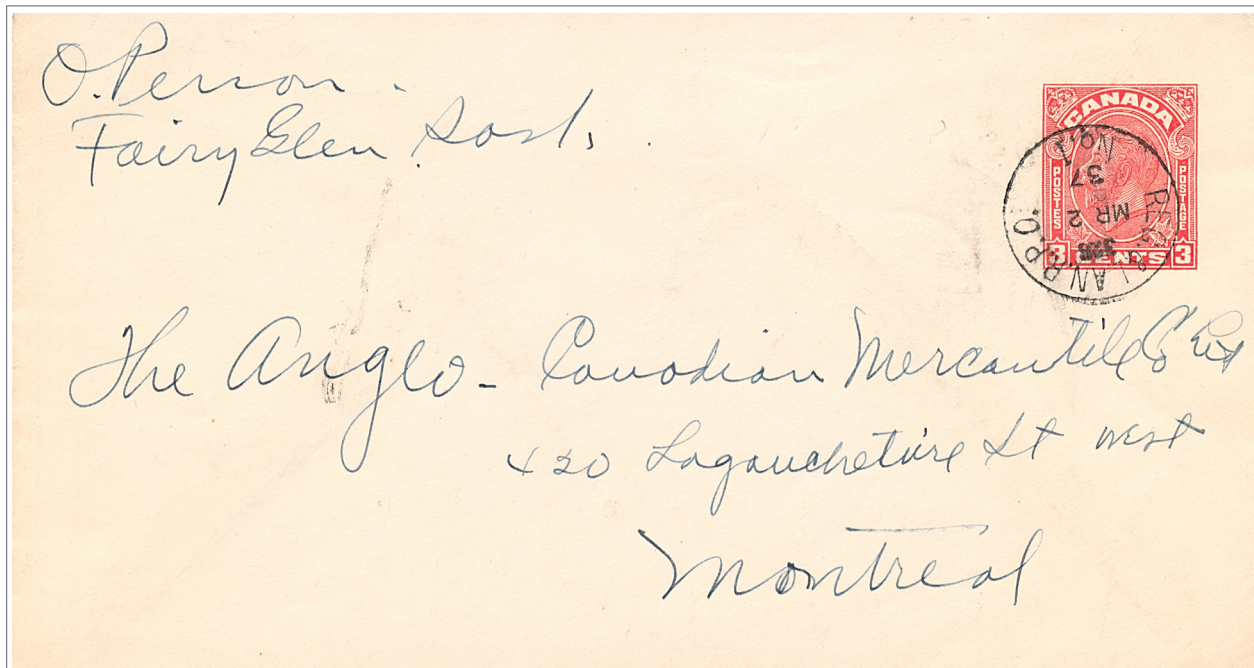 O. Perron.
Fairy Glen Sask.
CANADA
POSTES
POSTAGE
3 CENTS 3
REG. & LAN. R.P.O.
MR 2
37
No. 1
The Anglo - Canadian Mercantile Co Ltd
420 Lagauchetiére St west
Montreal